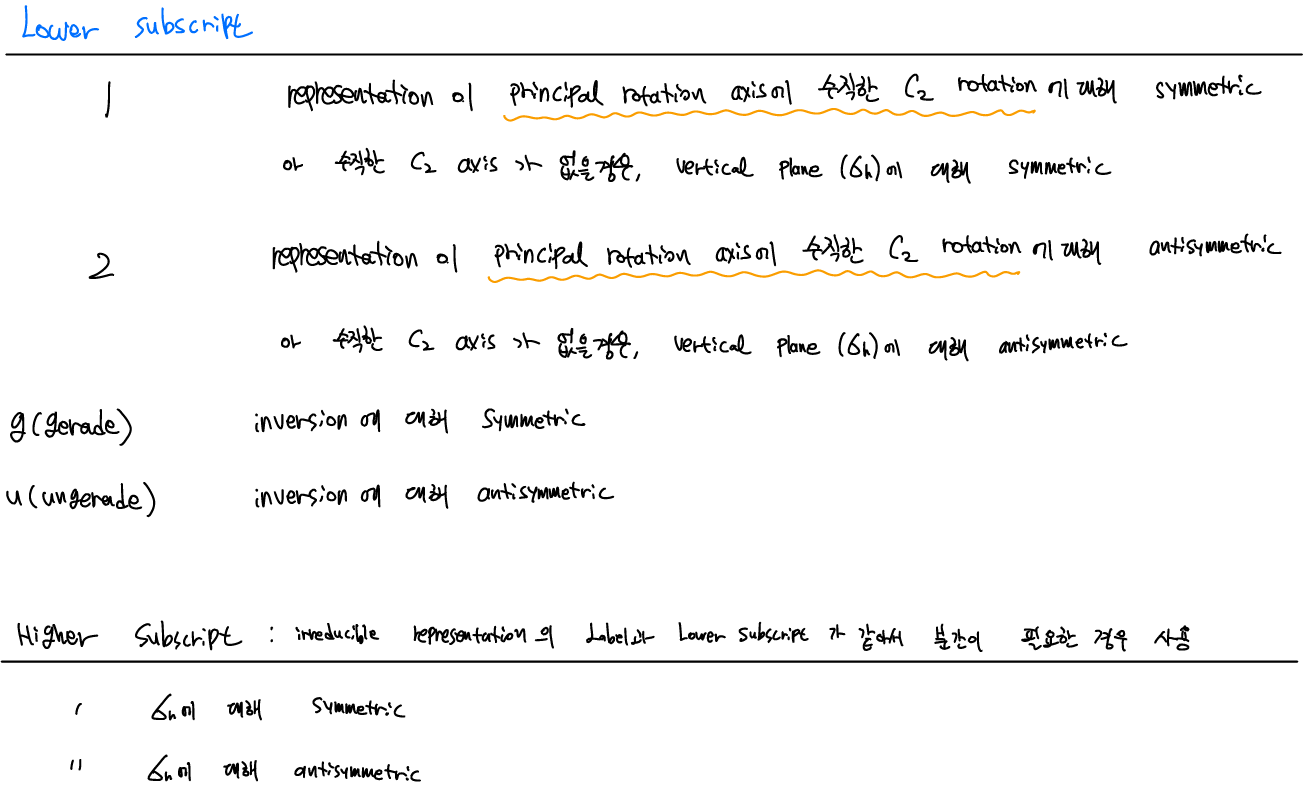 Lower subscript
1 representation 이 principal rotation axis에 수직한 C₂ rotation 에 대해 symmetric
or 수직한 C₂ axis 가 없을 경우, vertical plane (σh)에 대해 symmetric
2 representation 이 principal rotation axis에 수직한 C₂ rotation 에 대해 antisymmetric
or 수직한 C₂ axis 가 없을 경우, vertical plane (σh)에 대해 antisymmetric
g(gerade) inversion 에 대해 symmetric
u(ungerade) inversion 에 대해 antisymmetric
Higher Subscript : irreducible representation 의 Label과 Lower subscript 가 같아서 분간이 필요한 경우 사용
' σh에 대해 symmetric
" σh에 대해 antisymmetric